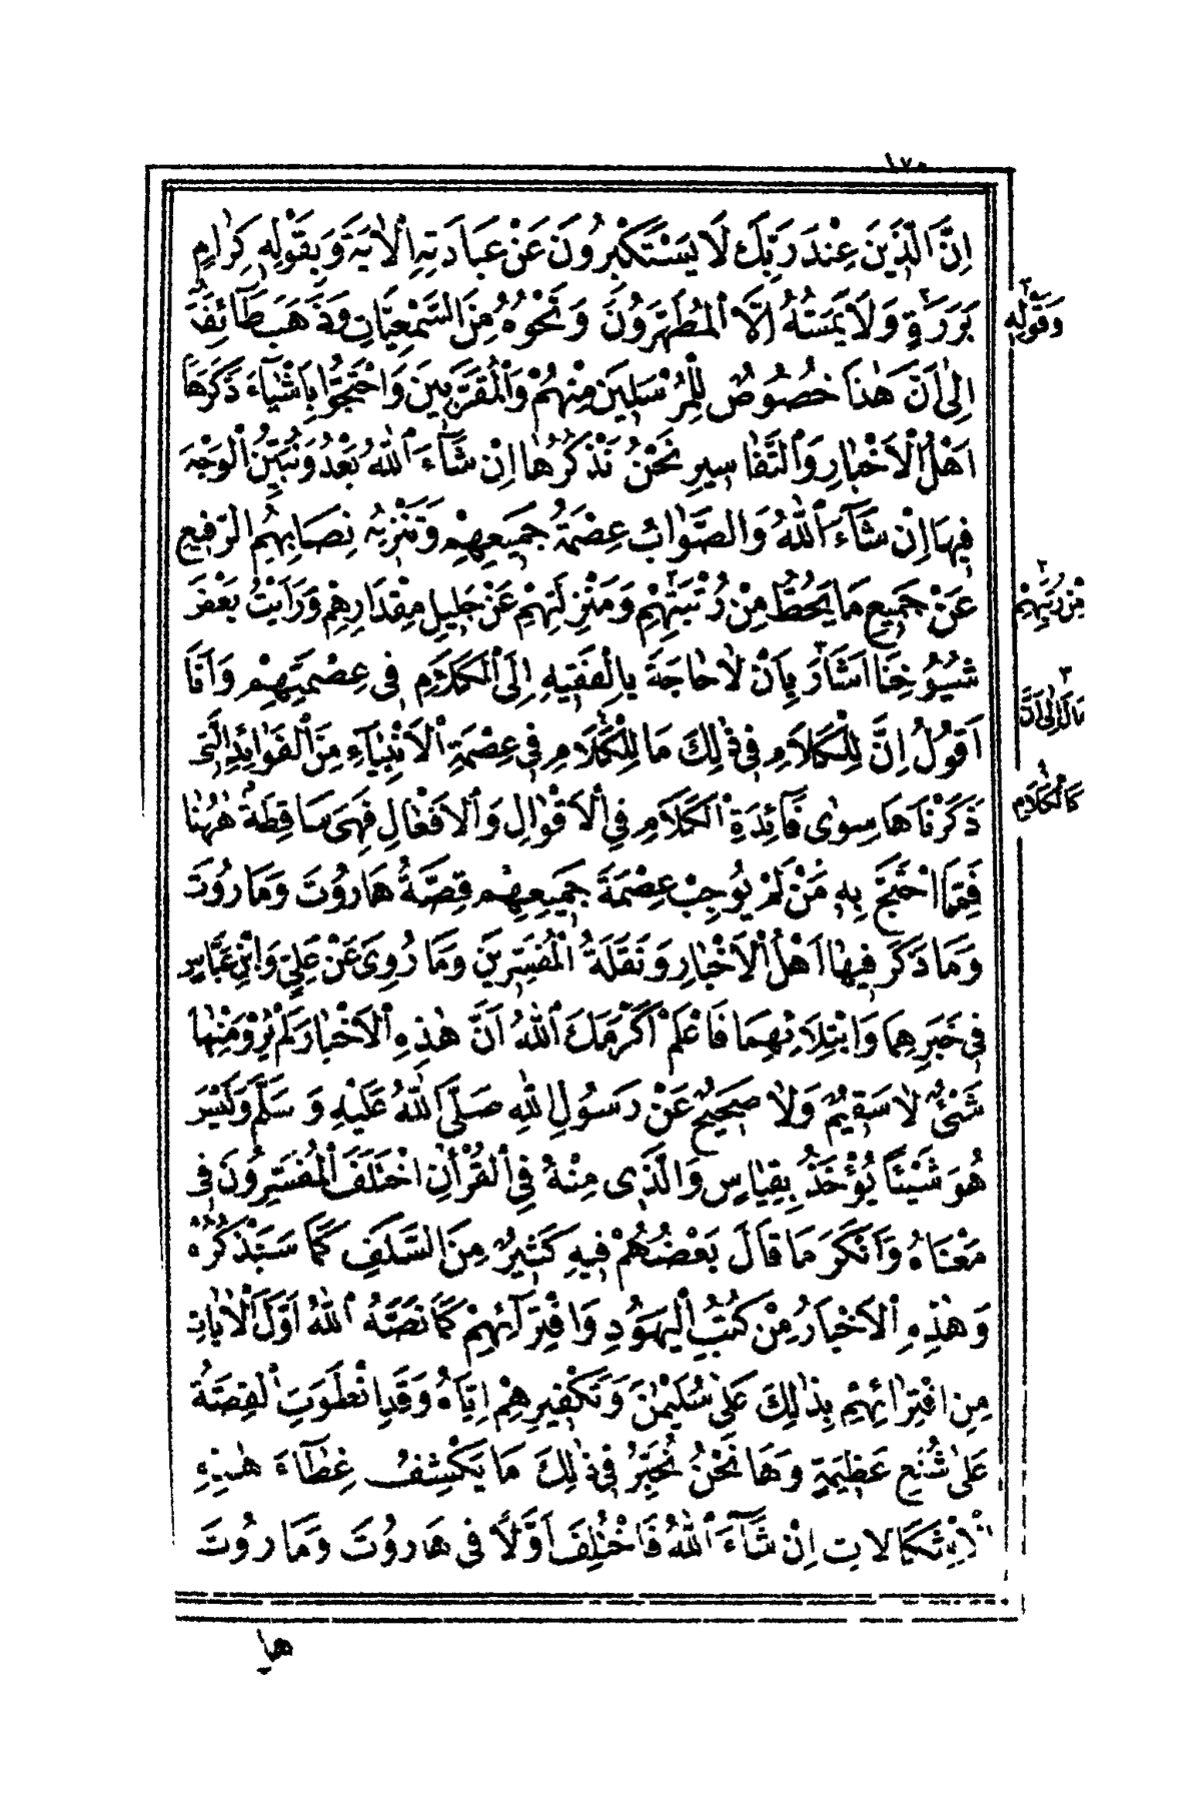 ١٧٠
اِنَّ الَّذِينَ عِنْدَ رَبِّكَ لَا يَسْتَكْبِرُونَ عَنْ عِبَادَتِهِ الْاٰيَةَ وَبِقَوْلِهِ كِرَامٍ
بَرَرَةٍ وَلَا يَمَسُّهُ اِلَّا الْمُطَهَّرُونَ وَنَحْوِهُ مِنَ السَّمْعِيَّاتِ وَذَهَبَ طَآئِفَةٌ
وَقَوْلِهِ
اِلٰى اَنَّ هٰذَا خُصُوصٌ لِلْمُرْسَلِينَ مِنْهُمْ وَالْمُقَرَّبِينَ وَاحْتَجُّوا بِاَشْيَآءَ ذَكَرَهَا
اَهْلُ الْاَخْبَارِ وَالتَّفَاسِيرِ نَحْنُ نَذْكُرُهَا اِنْ شَآءَ اللّٰهُ بَعْدُ وَنُبَيِّنُ الْوَجْهَ
فِيهَا اِنْ شَآءَ اللّٰهُ وَالصَّوَابُ عِصْمَةُ جَمِيعِهِمْ وَتَنْزِيهُ نِصَابِهِمُ الرَّفِيعِ
عَنْ جَمِيعِ مَا يَحُطُّ مِنْ رُتْبَتِهِمْ وَمَنْزِلَتِهِمْ عَنْ جَلِيلِ مِقْدَارِهِمْ وَرَاَيْتُ بَعْضَ
مِنْ رُتَبِهِمْ
شُيُوخِنَا اَشَارَ بِاَنْ لَاحَاجَةَ بِالْفَقِيهِ اِلَى الْكَلَامِ فِى عِصْمَتِهِمْ وَاَنَا
مَالَ اِلٰى اَنَّ
اَقُولُ اِنَّ لِلْكَلَامِ فِى ذٰلِكَ مَا لِلْكَلَامِ فِى عِصْمَةِ الْاَنْبِيَآءِ مِنَ الْفَوَائِدِ الَّتِى
كَالْكَلَامِ
ذَكَرْنَاهَا سِوٰى فَآئِدَةِ الْكَلَامِ فِى الْاَقْوَالِ وَالْاَفْعَالِ فَهِىَ سَاقِطَةٌ هٰهُنَا
فَمِمَّا احْتَجَّ بِهِ مَنْ لَمْ يُوجِبْ عِصْمَةَ جَمِيعِهِمْ قِصَّةُ هَارُوتَ وَمَارُوتَ
وَمَا ذَكَرَ فِيهَا اَهْلُ الْاَخْبَارِ وَنَقَلَةُ الْمُفَسِّرِينَ وَمَا رُوِىَ عَنْ عَلِىٍّ وَابْنِ عَبَّاسٍ
فِى خَبَرِهِمَا وَابْتِلَائِهِمَا فَاعْلَمْ اَكْرَمَكَ اللّٰهُ اَنَّ هٰذِهِ الْاَخْبَارَ لَمْ يُرْوَ مِنْهَا
شَىْءٌ لَا سَقِيمٌ وَلَا صَحِيحٌ عَنْ رَسُولِ اللّٰهِ صَلَّى اللّٰهُ عَلَيْهِ وَسَلَّمَ وَلَيْسَ
هُوَ شَيْئًا يُؤْخَذُ بِقِيَاسٍ وَالَّذِى مِنْهُ فِى الْقُرْاٰنِ اخْتَلَفَ الْمُفَسِّرُونَ فِى
مَعْنَاهُ وَاَنْكَرَ مَا قَالَ بَعْضُهُمْ فِيهِ كَثِيرٌ مِنَ السَّلَفِ كَمَا سَنَذْكُرُهُ
وَهٰذِهِ الْاَخْبَارُ مِنْ كُتُبِ الْيَهُودِ وَافْتِرَآئِهِمْ كَمَا نَصَّهُ اللّٰهُ اَوَّلَ الْاٰيَاتِ
مِنِ افْتِرَائِهِمْ بِذٰلِكَ عَلٰى سُلَيْمٰنَ وَتَكْفِيرِهِمْ اِيَّاهُ وَقَدِ انْطَوَتِ الْقِصَّةُ
عَلٰى شُنَعٍ عَظِيمَةٍ وَهَا نَحْنُ نُحَبِّرُ فِى ذٰلِكَ مَا يَكْشِفُ غِطَآءَ هٰذِهِ
الْاِشْكَالَاتِ اِنْ شَآءَ اللّٰهُ فَاخْتُلِفَ اَوَّلًا فِى هَارُوتَ وَمَارُوتَ
هل